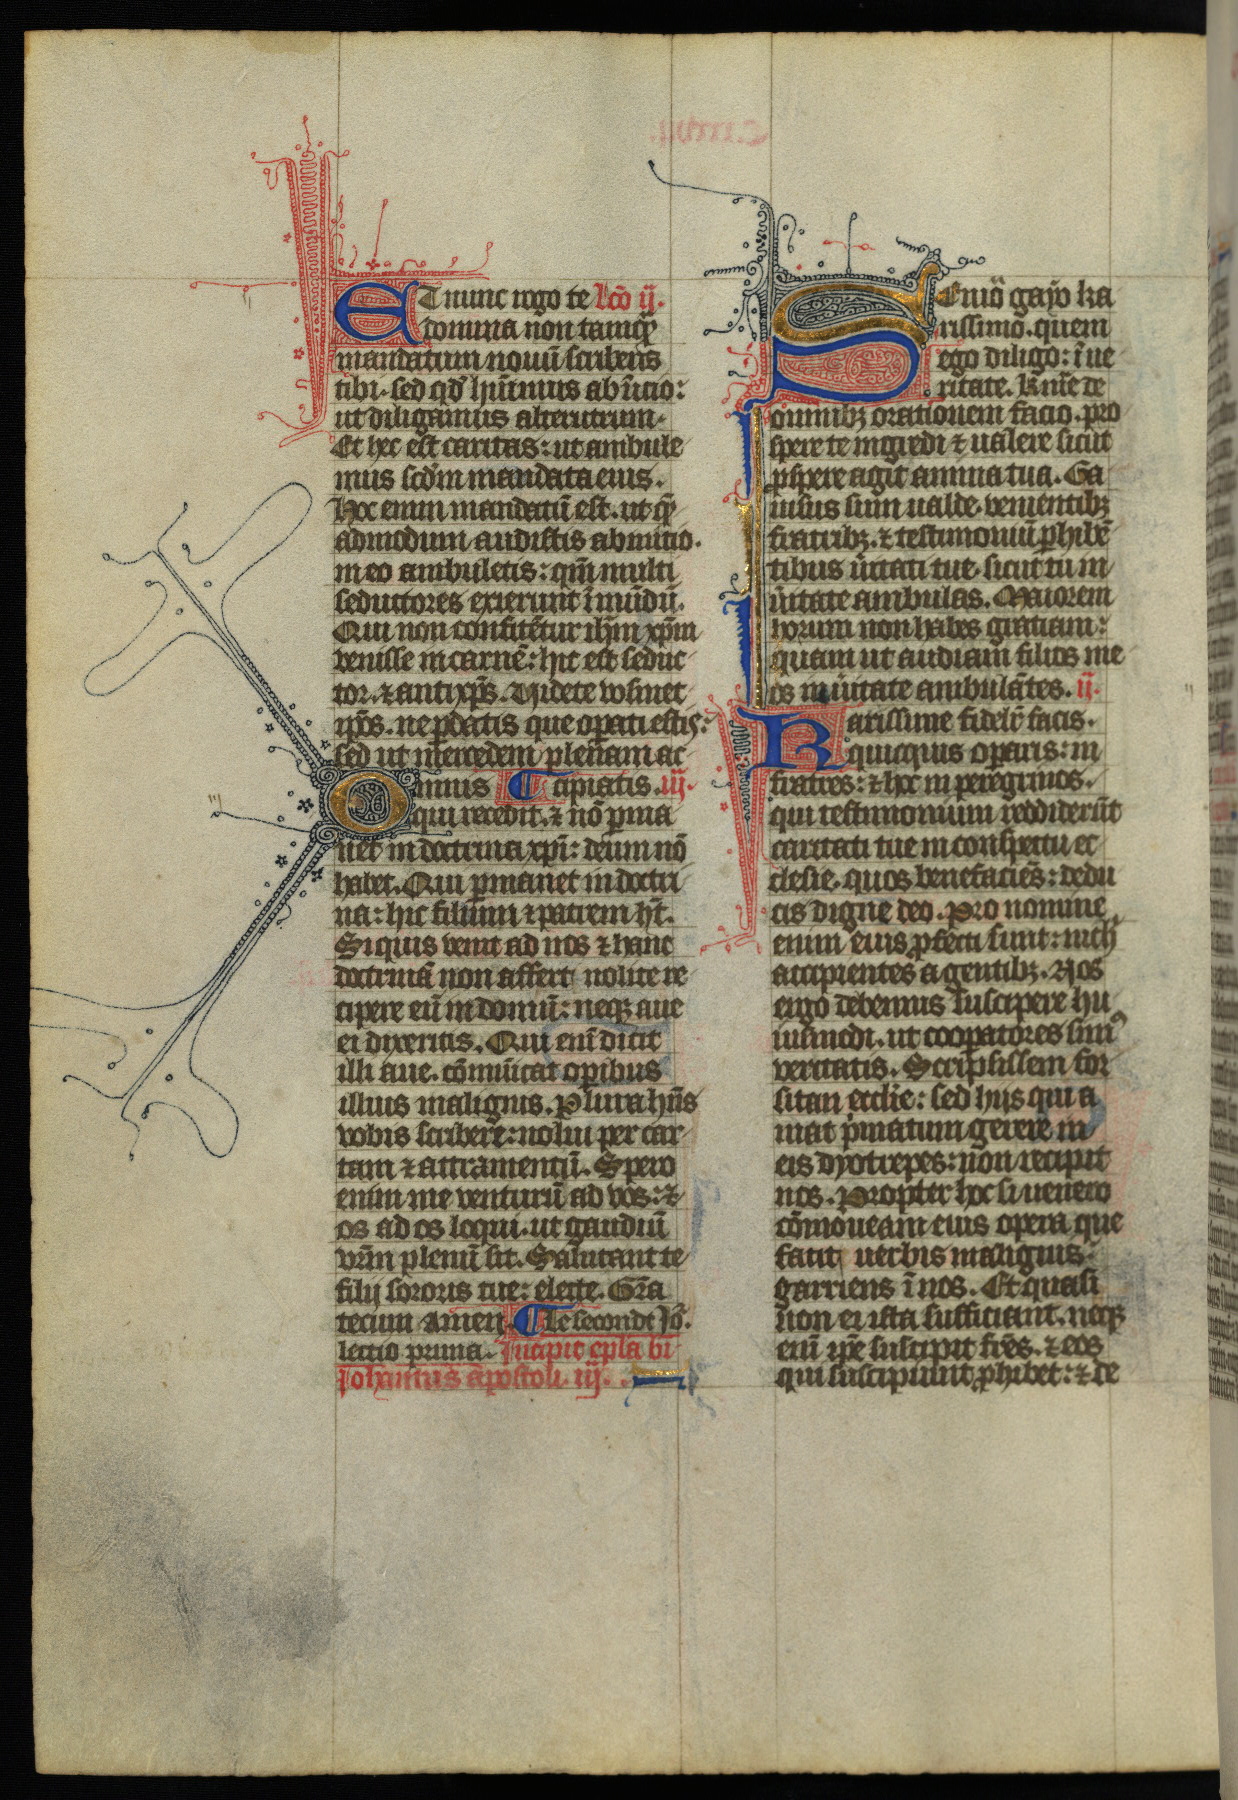 ET nunc rogo te lcō ij.
domina non tamq̄
mandatum nouū scribens
tibi. sed qd̄ habuimus ab initio:
ut diligamus alterutrum.
Et hec est caritas: ut ambule
mus scd̄m mandata eius.
Hoc enim mandatū est. ut q̄
admodum audistis ab initio.
in eo ambuletis: qm̄ multi
seductores exierunt ī mūdū.
Qui non confitētur ihm̄ xpm̄
venisse in carnē: hic est seduc
tor. ⁊ antixp̄s. Videte vosmet
ip̄os. ne perdatis que operati estis:
sed ut mercedem plenam ac
cipiatis. iij.
Omnis
qui recedit. ⁊ nō perma
net in doctrina xpī: deum nō
habet. Qui permanet in doctri
na: hic filium ⁊ patrem ht̄.
Si quis venit ad nos ⁊ hanc
doctrinā non affert nolite re
cipere eū in domū: neqꝫ aue
ei dixeritis. Qui enī dicit
illi aue. cōmūicat operibus
illius malignis. Plura hn̄s
vobis scribere: nolui per car
tam ⁊ attramentū. Spero
enim me venturū ad vos: ⁊
os ad os loqui. ut gaudiū
vr̄m plenū sit. Salutant te
filij sororis tue: electe. Grā
tecum amen. Le secondt Jo.
lectio prima. Incipit epla bi
Johannis apostoli iij.
Seniō gayo ka
rissimo. quem
ego diligo: ī ue
ritate. Kme de
omnibꝫ orationem facio. pro
spere te ingredi ⁊ ualere sicut
ꝓspere agit anima tua. Ga
uisus sum ualde. venientibꝫ
fratribꝫ. ⁊ testimoniū ꝑhibē
tibus ūitati tue. sicut tu in
ūitate ambulas. Maiorem
horum non habes gratiam:
quam ut audiam filios me
os in ūitate ambulātes. ij.
Karissime fidelr̄ facis.
quicquis oparis: in
fratres: ⁊ hoc in peregrinos.
qui testimonium reddiderūt
caritati tue in conspectu ec
clesie. quos benefaciēs: dedu
cis digne deo. Pro nomine
enim eius ꝓfecti sunt: nich̄
accipientes a gentibꝫ. Nos
ergo debemus suscipere hu
iusmodi. ut cooꝑatores simꝰ
veritatis. Scripsissem for
sitan ecclie: sed hijs qui a
mat ꝑmatum gerere in
eis dyotrepes: non recipit
nos. Propter hoc si uenero
cōmoueam eius opera que
facit uerbis malignis:
garriens ī nos. Et quasi
non ei ista sufficiant. neqꝫ
enī ip̄e suscipit fr̄es. ⁊ eos
qui suscipiunt ꝓhibet: ⁊ de